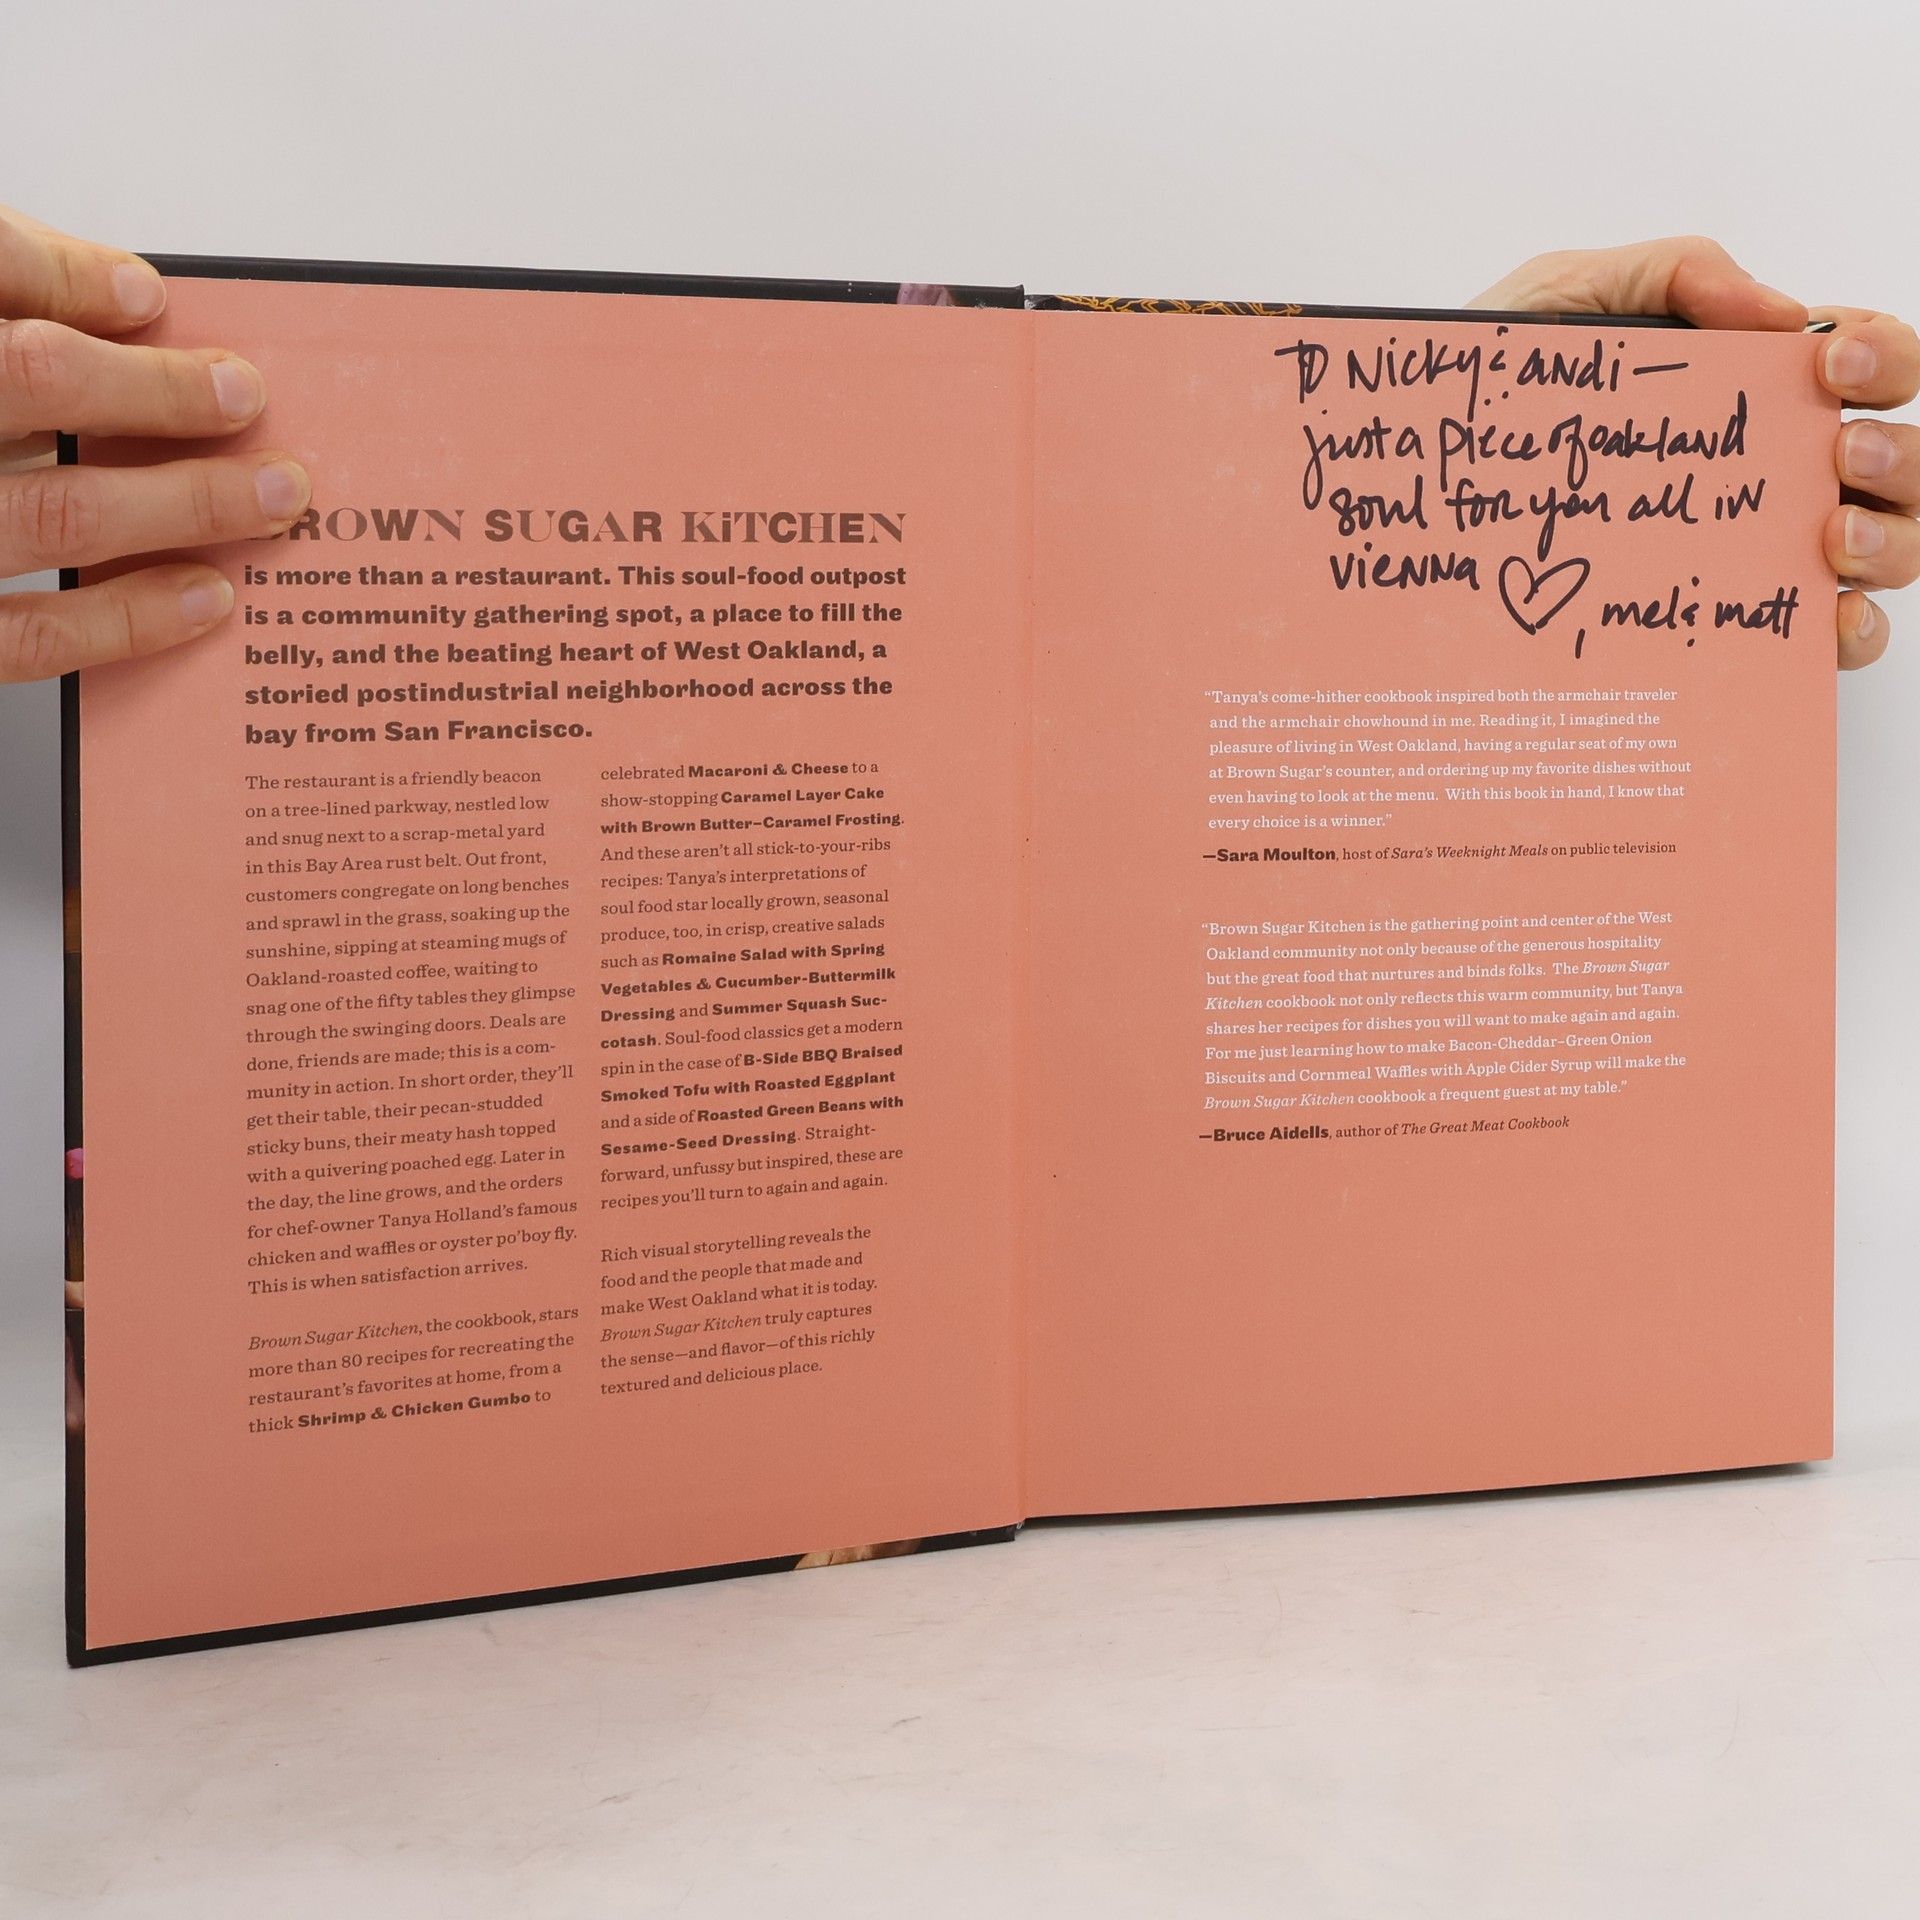 BROWN SUGAR KiTCHEN
is more than a restaurant. This soul-food outpost
is a community gathering spot, a place to fill the
belly, and the beating heart of West Oakland, a
storied postindustrial neighborhood across the
bay from San Francisco.
The restaurant is a friendly beacon
on a tree-lined parkway, nestled low
and snug next to a scrap-metal yard
in this Bay Area rust belt. Out front,
customers congregate on long benches
and sprawl in the grass, soaking up the
sunshine, sipping at steaming mugs of
Oakland-roasted coffee, waiting to
snag one of the fifty tables they glimpse
through the swinging doors. Deals are
done, friends are made; this is a com-
munity in action. In short order, they'll
get their table, their pecan-studded
sticky buns, their meaty hash topped
with a quivering poached egg. Later in
the day, the line grows, and the orders
for chef-owner Tanya Holland's famous
chicken and waffles or oyster po'boy fly.
This is when satisfaction arrives.
Brown Sugar Kitchen, the cookbook, stars
more than 80 recipes for recreating the
restaurant's favorites at home, from a
thick Shrimp & Chicken Gumbo to
celebrated Macaroni & Cheese to a
show-stopping Caramel Layer Cake
with Brown Butter–Caramel Frosting.
And these aren't all stick-to-your-ribs
recipes: Tanya's interpretations of
soul food star locally grown, seasonal
produce, too, in crisp, creative salads
such as Romaine Salad with Spring
Vegetables & Cucumber-Buttermilk
Dressing and Summer Squash Suc-
cotash. Soul-food classics get a modern
spin in the case of B-Side BBQ Braised
Smoked Tofu with Roasted Eggplant
and a side of Roasted Green Beans with
Sesame-Seed Dressing. Straight-
forward, unfussy but inspired, these are
recipes you'll turn to again and again.
Rich visual storytelling reveals the
food and the people that made and
make West Oakland what it is today.
Brown Sugar Kitchen truly captures
the sense—and flavor—of this richly
textured and delicious place.
TO Nicky & andi —
just a piece of oakland
soul for you all in
vienna ♡, mel & matt
“Tanya's come-hither cookbook inspired both the armchair traveler
and the armchair chowhound in me. Reading it, I imagined the
pleasure of living in West Oakland, having a regular seat of my own
at Brown Sugar's counter, and ordering up my favorite dishes without
even having to look at the menu. With this book in hand, I know that
every choice is a winner.”
—Sara Moulton, host of Sara's Weeknight Meals on public television
“Brown Sugar Kitchen is the gathering point and center of the West
Oakland community not only because of the generous hospitality
but the great food that nurtures and binds folks. The Brown Sugar
Kitchen cookbook not only reflects this warm community, but Tanya
shares her recipes for dishes you will want to make again and again.
For me just learning how to make Bacon-Cheddar–Green Onion
Biscuits and Cornmeal Waffles with Apple Cider Syrup will make the
Brown Sugar Kitchen cookbook a frequent guest at my table.”
—Bruce Aidells, author of The Great Meat Cookbook